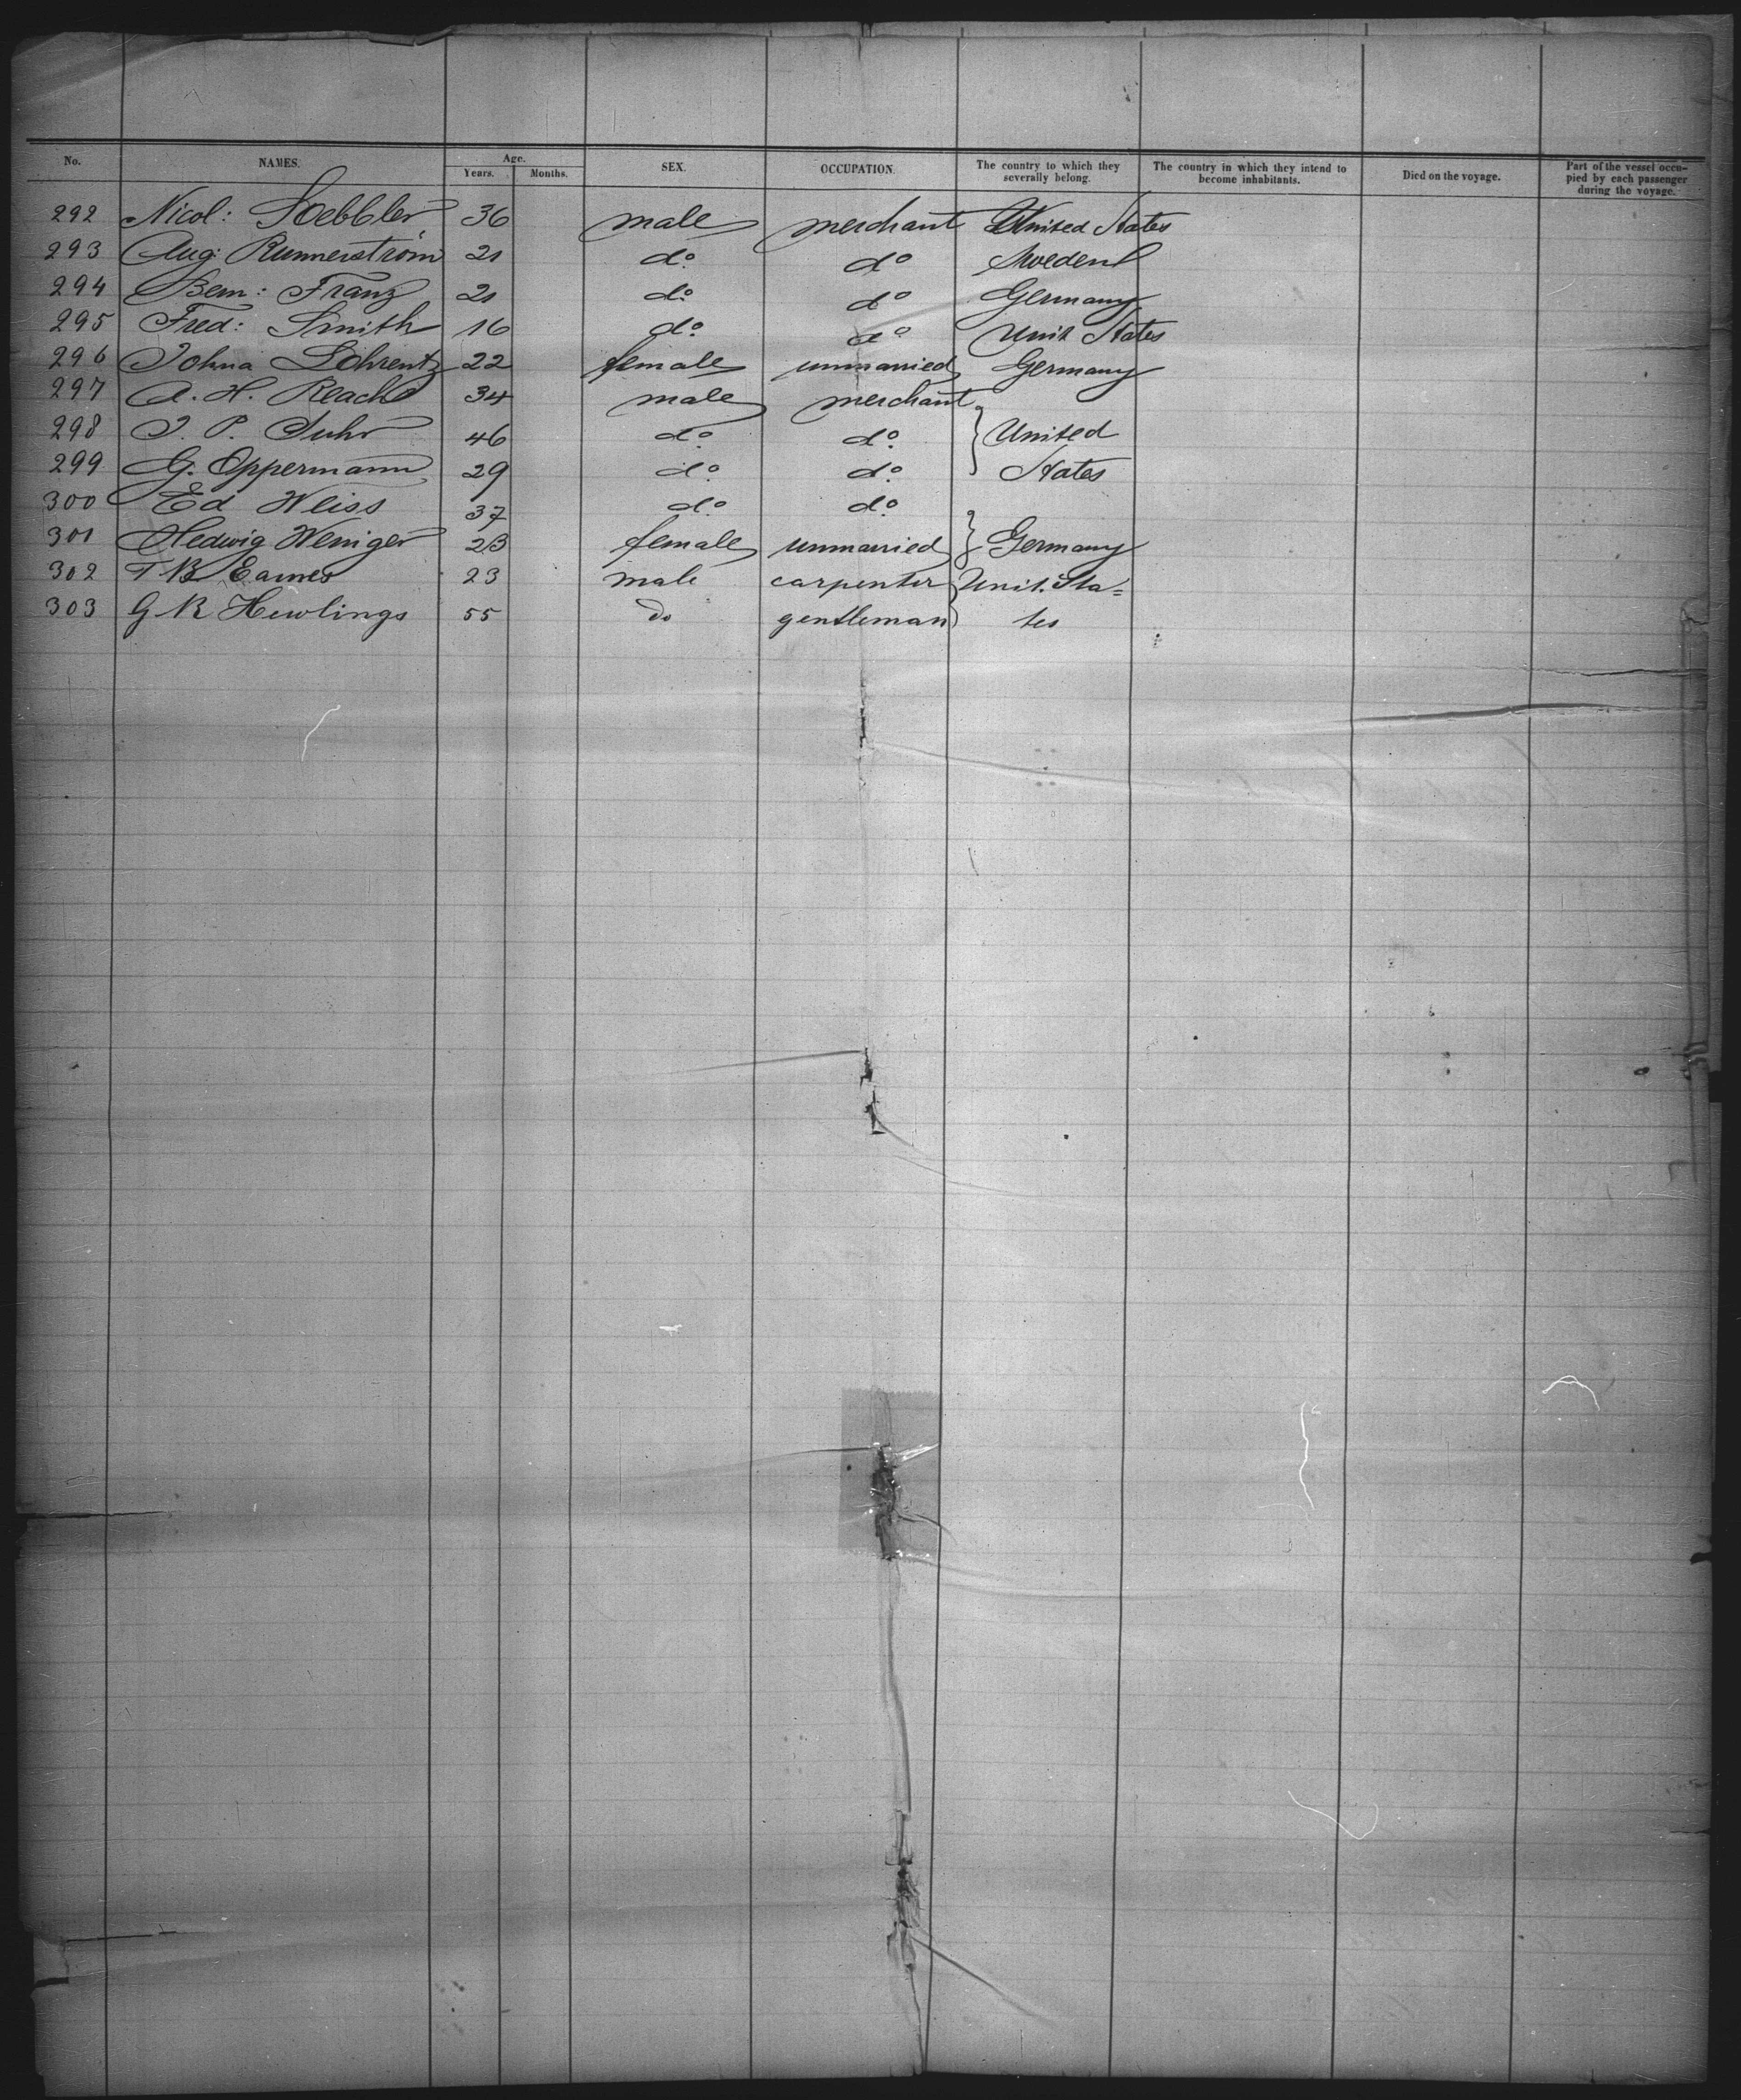 No. NAMES. Age. Years. Months. SEX. OCCUPATION. The country to which they severally belong. The country in which they intend to become inhabitants. Died on the voyage. Part of the vessel occu-pied by each passenger during the voyage.
292 Nicol: 36 male merchant United States
293 Aug: Runnerström 21 do do Sweden
294 Bern: Franz 21 do do Germany
295 Fred: Smith 16 do do Unit States
296 Johna Lohrentz 22 female unmarried Germany
297 A. H. Reach 34 male merchant
298 J. P. Suhr 46 do do United
299 G. Oppermann 29 do do States
300 Ed Weiss 37 do do
301 Hedwig Weniger 23 female unmarried Germany
302 T B Eames 23 male carpenter Unit. Sta=
303 G R Hewlings 55 do gentleman tes